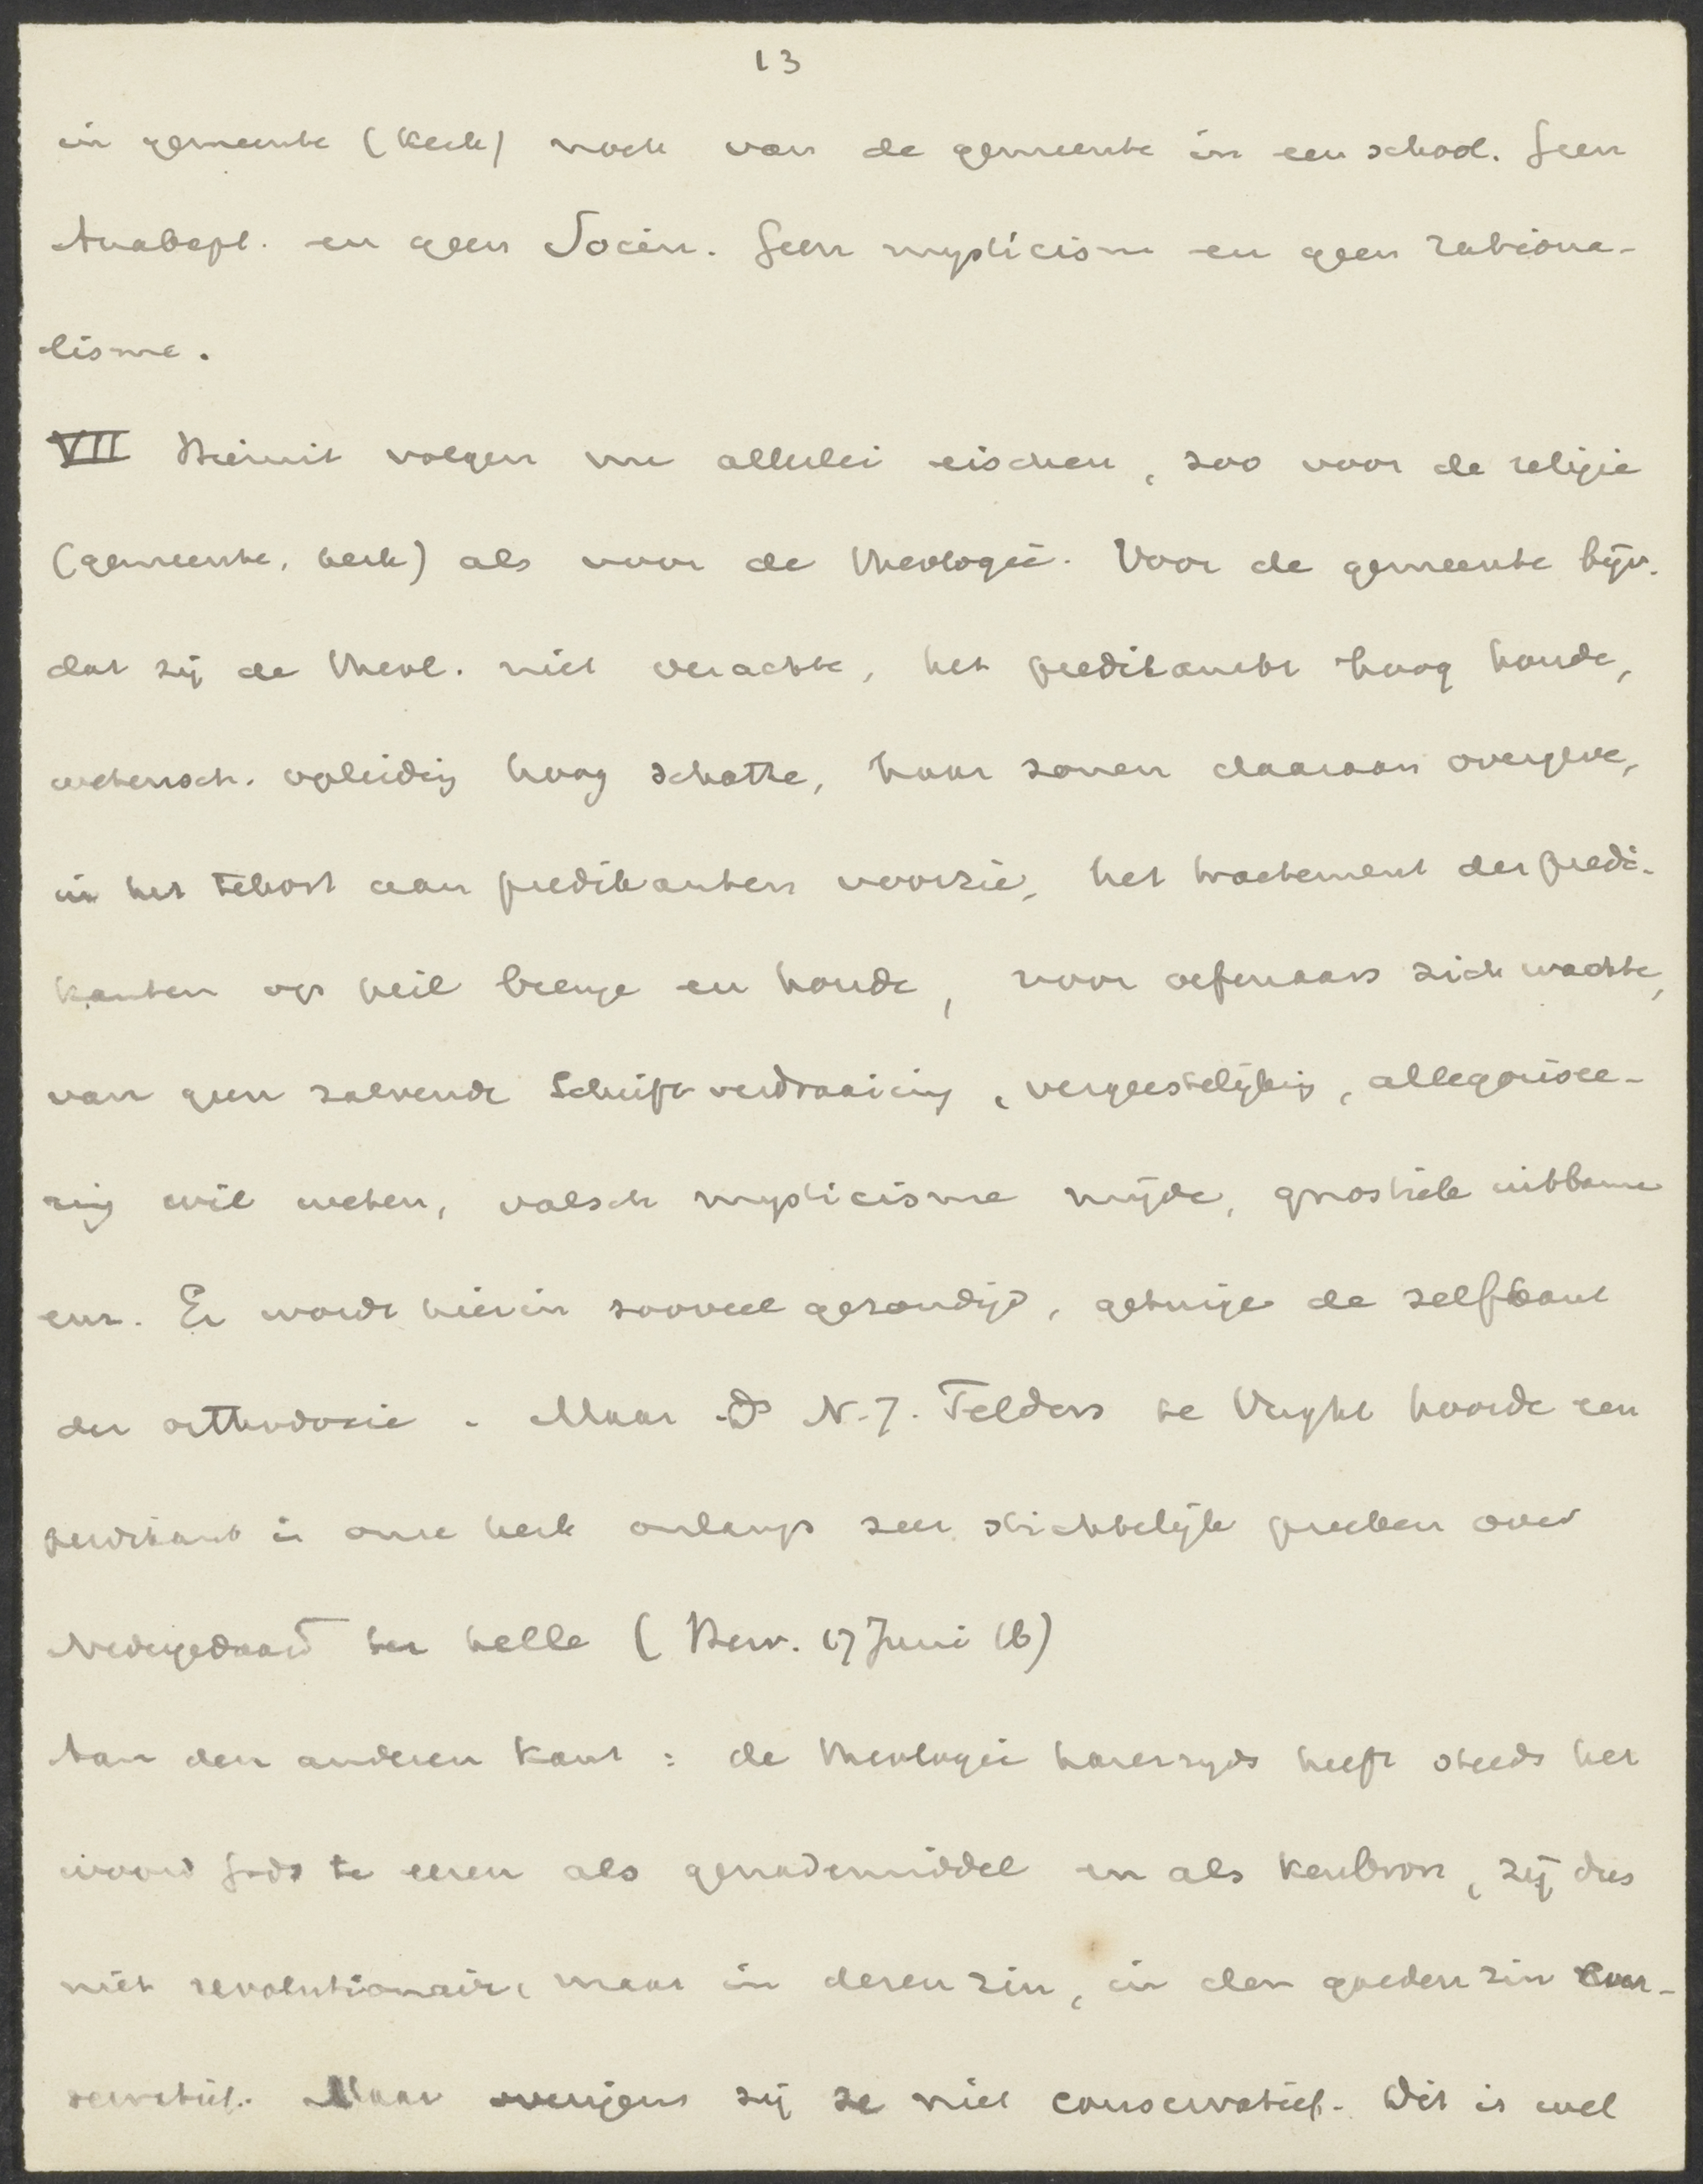 13
in gemeente (kerk) noch van de gemeente in een school. Geen
Anabapt. en geen Socin. Geen mysticisme en geen rationa-
lisme.
VII Hieruit volgen nu allerlei eischen, zoo voor de religie
(gemeente, kerk) als voor de theologie. Voor de gemeente bijv.
dat zij de theol. niet verachte, het predikambt hoog houde,
wetensch. opleiding hoog schatte, haar zonen daaraan overgeve,
in het tekort aan predikanten voorzie, het tractement der predi-
kanten op peil brenge en houde, voor oefenaars zich wachte,
van geen zalvende Schriftverdraaiing, vergeestelijking, allegorisee-
ring wil weten, valsch mysticisme mijde, gnostiek
enz. Er wordt hierin zooveel gezondigd, getuige de zelfkant
der orthodoxie. Maar Ds N.J. Felders te Vught hoorde een
predikant in onze kerk onlangs zeer stichtelijk preeken over
Nedergedaald ter helle (Herv. 17 Juni 16)
Aan den anderen kant: de theologie harerzijds heeft steeds het
woord Gods te eeren als genademiddel en als kenbron, zij dus
niet revolutionair, maar in deren zin, in den goeden zin con-
servatief. Maar overigens zij ze niet conservatief. Dit is wel